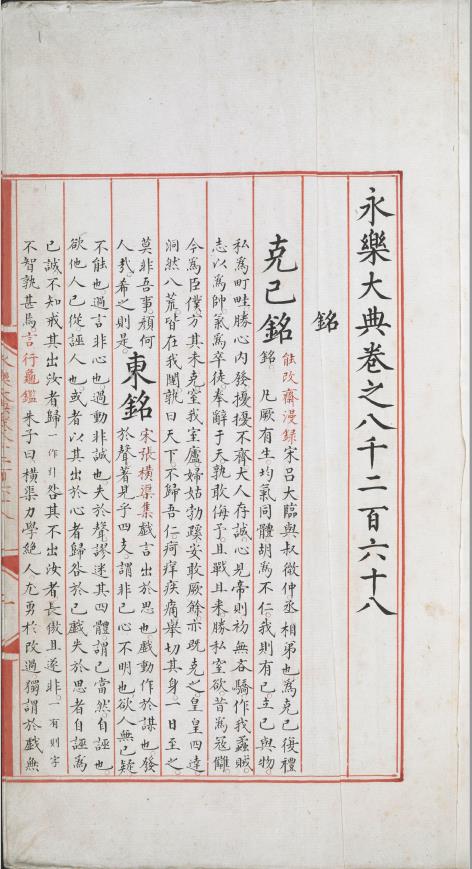 永樂大典卷之八千二百六十八
銘
克己銘
能改齋漫録宋呂大臨與叔微仲丞相弟也為克己復禮
銘。凡厥有生均氣同體胡為不仁我則有己立己與物
私為町畦勝心内發擾擾不齊大人存誠心見帝則初無吝驕作我蟊賊
志以為帥氣為卒徒奉辭于天孰敢侮予且戰且來勝私窒欲昔為寇讎
今為臣僕方其未克室我室廬婦姑勃蹊安敢厥餘亦既克之皇皇四達
洞然八荒皆在我闥孰曰天下不歸吾仁痾痒疾痛舉切其身一日至之
莫非吾事顏何
人哉希之則是
東銘
宋張横渠集戲言出於思也戲動作於謀也發
於聲著見乎四支謂非己心不明也欲人無己疑
不能也過言非心也過動非誠也失於聲謬迷其四體謂己當然自誣也
欲他人己從誣人也或者以其出於心者歸咎於己戲失於思者自誣為
己誠不知戒其出汝者歸一作引咎其不出汝者長傲且遂非一有則字
不智孰甚焉言行龜鑑朱子曰横渠力學絶人尤勇於改過獨謂於戲無